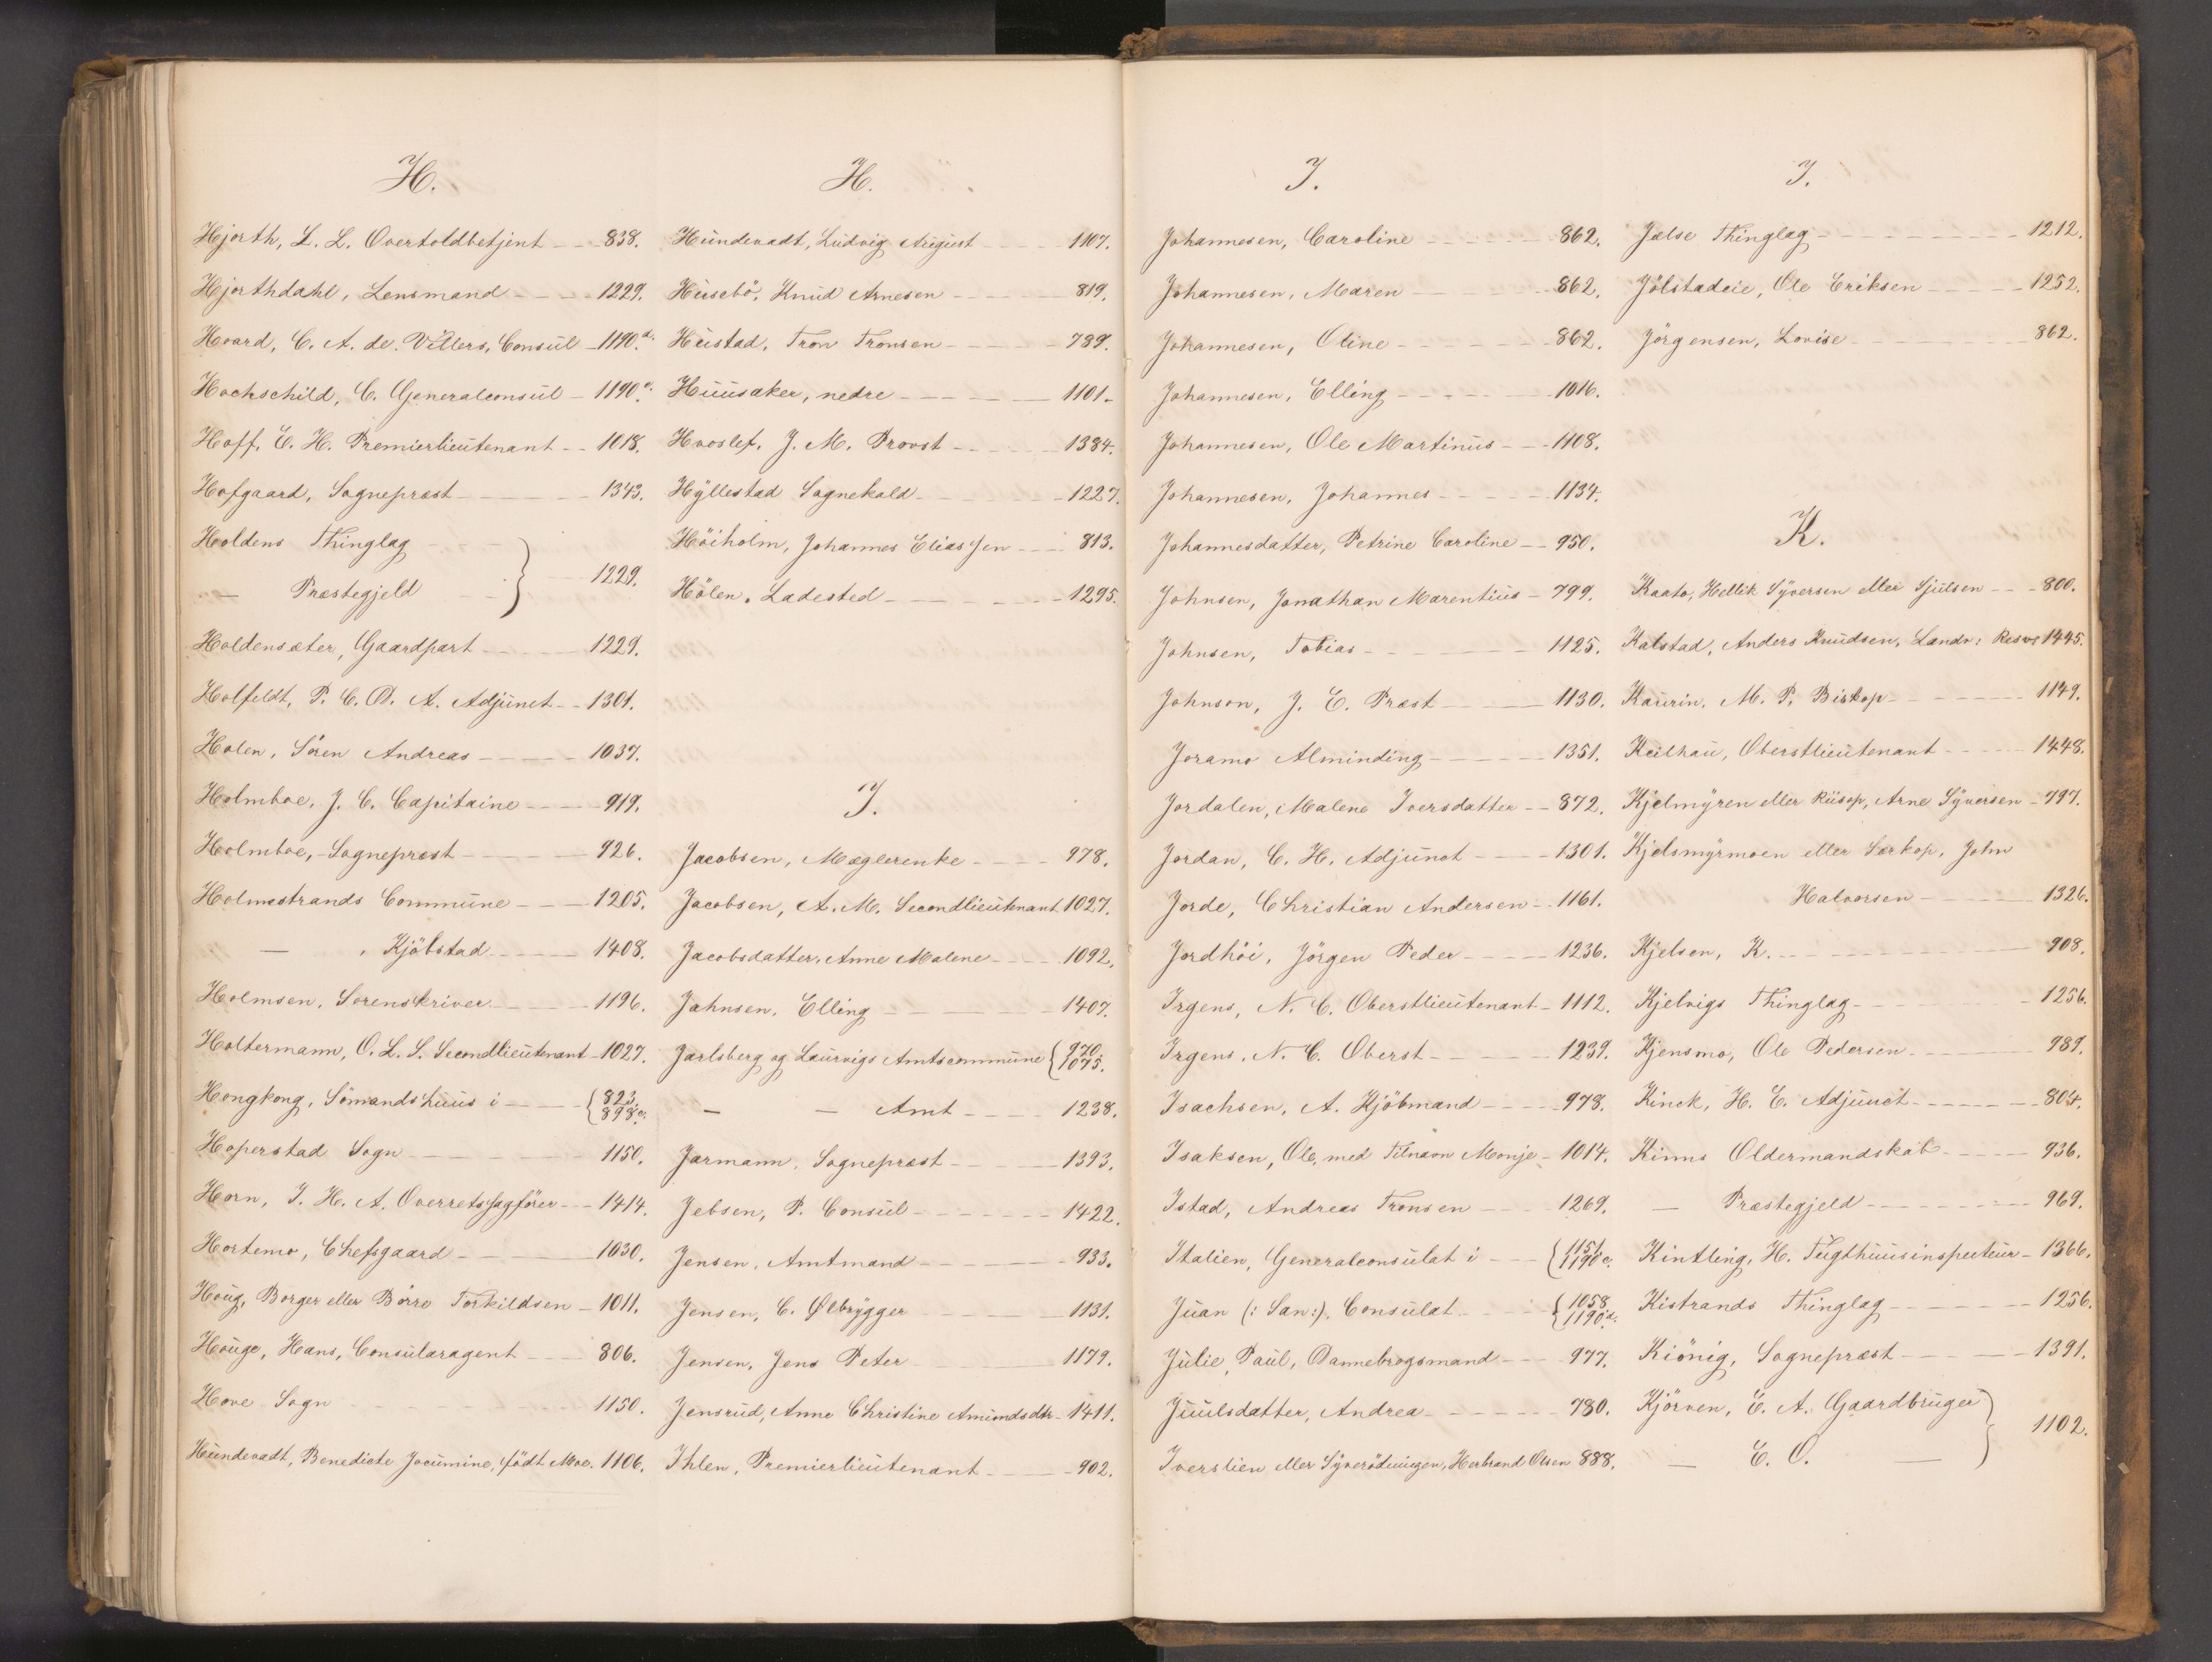 H.
Hjorth, L. L. Overtoldbetjent 838.
Hjorthdahl, Lensmand 1229.
Hoard, C. A. de Villers, Consul 1190 d.
Hochschild, C. Generalconsul 1190 c.
Hoff, E. H. Premierlieutenant 1018.
Hofgaard, Sognepræst 1343.
Holdens Thinglag
— Præstegjeld } 1229.
Holdensæter, Gaardpart 1229.
Holfeldt, P. C. D. A. Adjunct 1301.
Holen, Sören Andreas 1037.
Holmboe, J. C. Capitaine 919.
Holmboe, Sognepræst 926.
Holmestrands Commune 1205.
— Kjöbstad 1408.
Holmsen, Sorenskriver 1196.
Holtermann, O. L. S. Secondlieutenant 1027.
Hongkong, Sömandshuus i { 823. 898 c.
Hoperstad Sogn 1150.
Horn, I. H. A. Overretssagförer 1414.
Hortemo, Chefsgaard 1030.
Houg, Borger eller Börre Torkildsen 1011.
Houge, Hans, Consularagent 806.
Hove Sogn 1150.
Hundevadt, Benedicte Jocumine, födt Moe. 1106.
H.
Hundevadt, Ludvig August 1107.
Husebö, Knud Arnesen 819.
Hustad, Tron Tronsen 789.
Huusaker, nedre 1101.
Hvoslef, J. M. Provst 1384.
Hyllestad Sognekald 1227.
Höiholm, Johannes Eliassen 813.
Hölen, Ladested 1295.
J.
Jacobsen, Mæglerenke 978.
Jacobsen, A. M. Secondlieutenant 1027.
Jacobsdatter, Anne Malene 1092.
Jahnsen, Elling 1407.
Jarlsberg og Laurvigs Amtscommune { 970. 1075.
— — Amt 1238.
Jarmann, Sognepræst 1393.
Jebsen, P. Consul 1422.
Jensen, Amtmand 933.
Jensen, C. Ølbrygger 1131.
Jensen, Jens Peter 1179.
Jensrud, Anne Christine Amundsdtr 1411.
Ihlen, Premierlieutenant 902.
J.
Johannesen, Caroline 862.
Johannesen, Maren 862.
Johannesen, Oline 862.
Johannesen, Elling 1016.
Johannesen, Ole Martinus 1108.
Johannesen, Johannes 1134.
Johannesdatter, Petrine Caroline 950.
Johnsen, Jonathan Marentius 799.
Johnsen, Tobias 1125.
Johnson, J. E. Præst 1130.
Joramo Alminding 1351.
Jordalen, Malene Iversdatter 872.
Jordan, C. H. Adjunct 1301.
Jorde, Christian Andersen 1161.
Jordhöi, Jörgen Peder 1236.
Irgens, N. C. Oberstlieutenant 1112.
Irgens, N. C. Oberst 1239.
Isachsen, A. Kjöbmand 978.
Isaksen, Ole, med Tilnavn Monje 1014.
Istad, Andreas Tronsen 1269.
Italien, Generalconsulat i { 1151. 1190 c.
Juan (: San:). Consulat { 1058. 1190 d.
Julie, Paul, Dannebrogsmand 977.
Juulsdatter, Andrea 780.
Iverslien eller Syverödningen, Herbrand Olsen 888.
J.
Jælse Thinglag 1212.
Jölstadeie, Ole Eriksen 1252.
Jörgensen, Lovise 862.
K.
Kaato, Hellik Syversen eller Sjulsen 800.
Kalstad, Anders Knudsen, Landv: Resve 1445.
Kaurin, M. P. Biskop 1149.
Keilhau, Oberstlieutenant 1448.
Kjelmyren eller Riisop, Arne Syversen 797.
Kjelsmyrmoen eller Sarkop, John
Halvorsen 1326.
Kjelsen, K. 908.
Kjelvigs Thinglag 1256.
Kjensmo, Ole Pedersen 989.
Kinck, H. E. Adjunct 804.
Kinns Oldermandskab 936.
— Præstegjeld 969.
Kintling, H. Tugthuusinspecteur 1366.
Kistrands Thinglag 1256.
Kiönig, Sognepræst 1391.
Kjörven, E. A. Gaardbruger
— E. O. — } 1102.